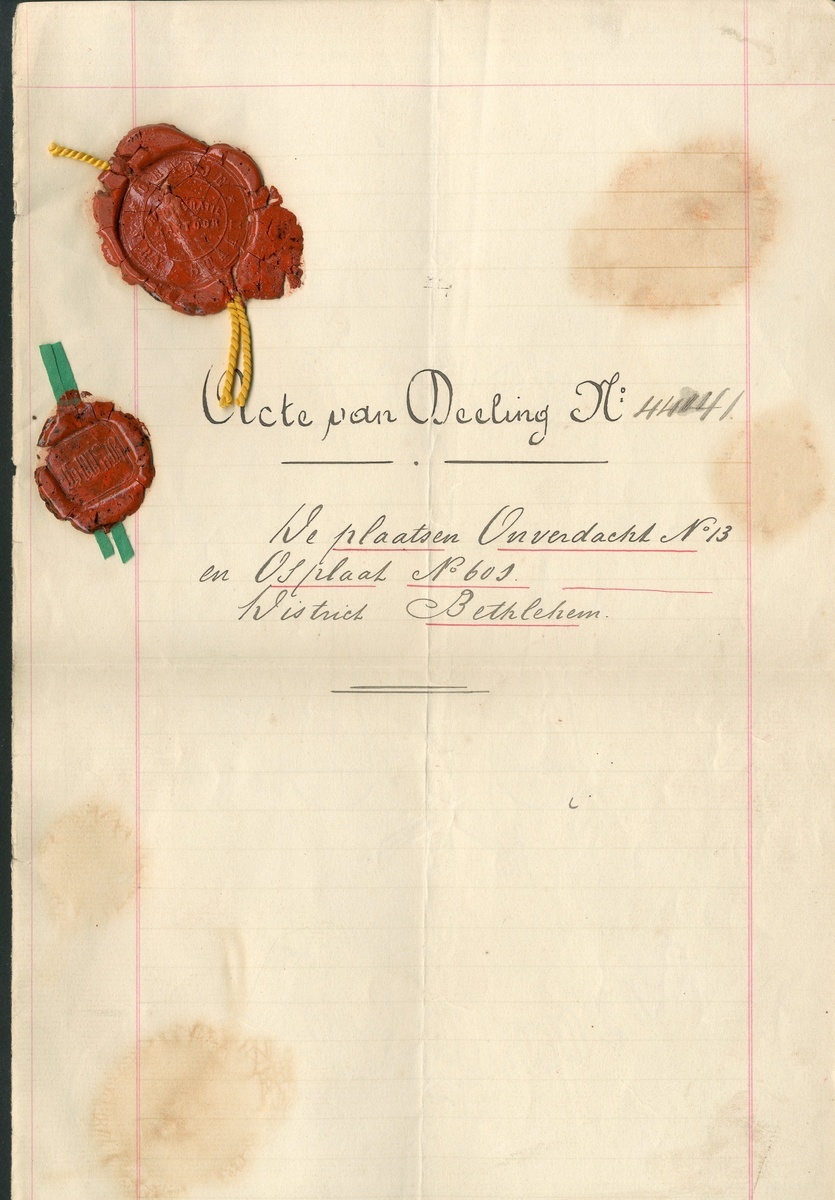 Acte van Deeling No:
De plaatsen Onverdacht No 13
en Osplaat No 609.
District Bethlehem.